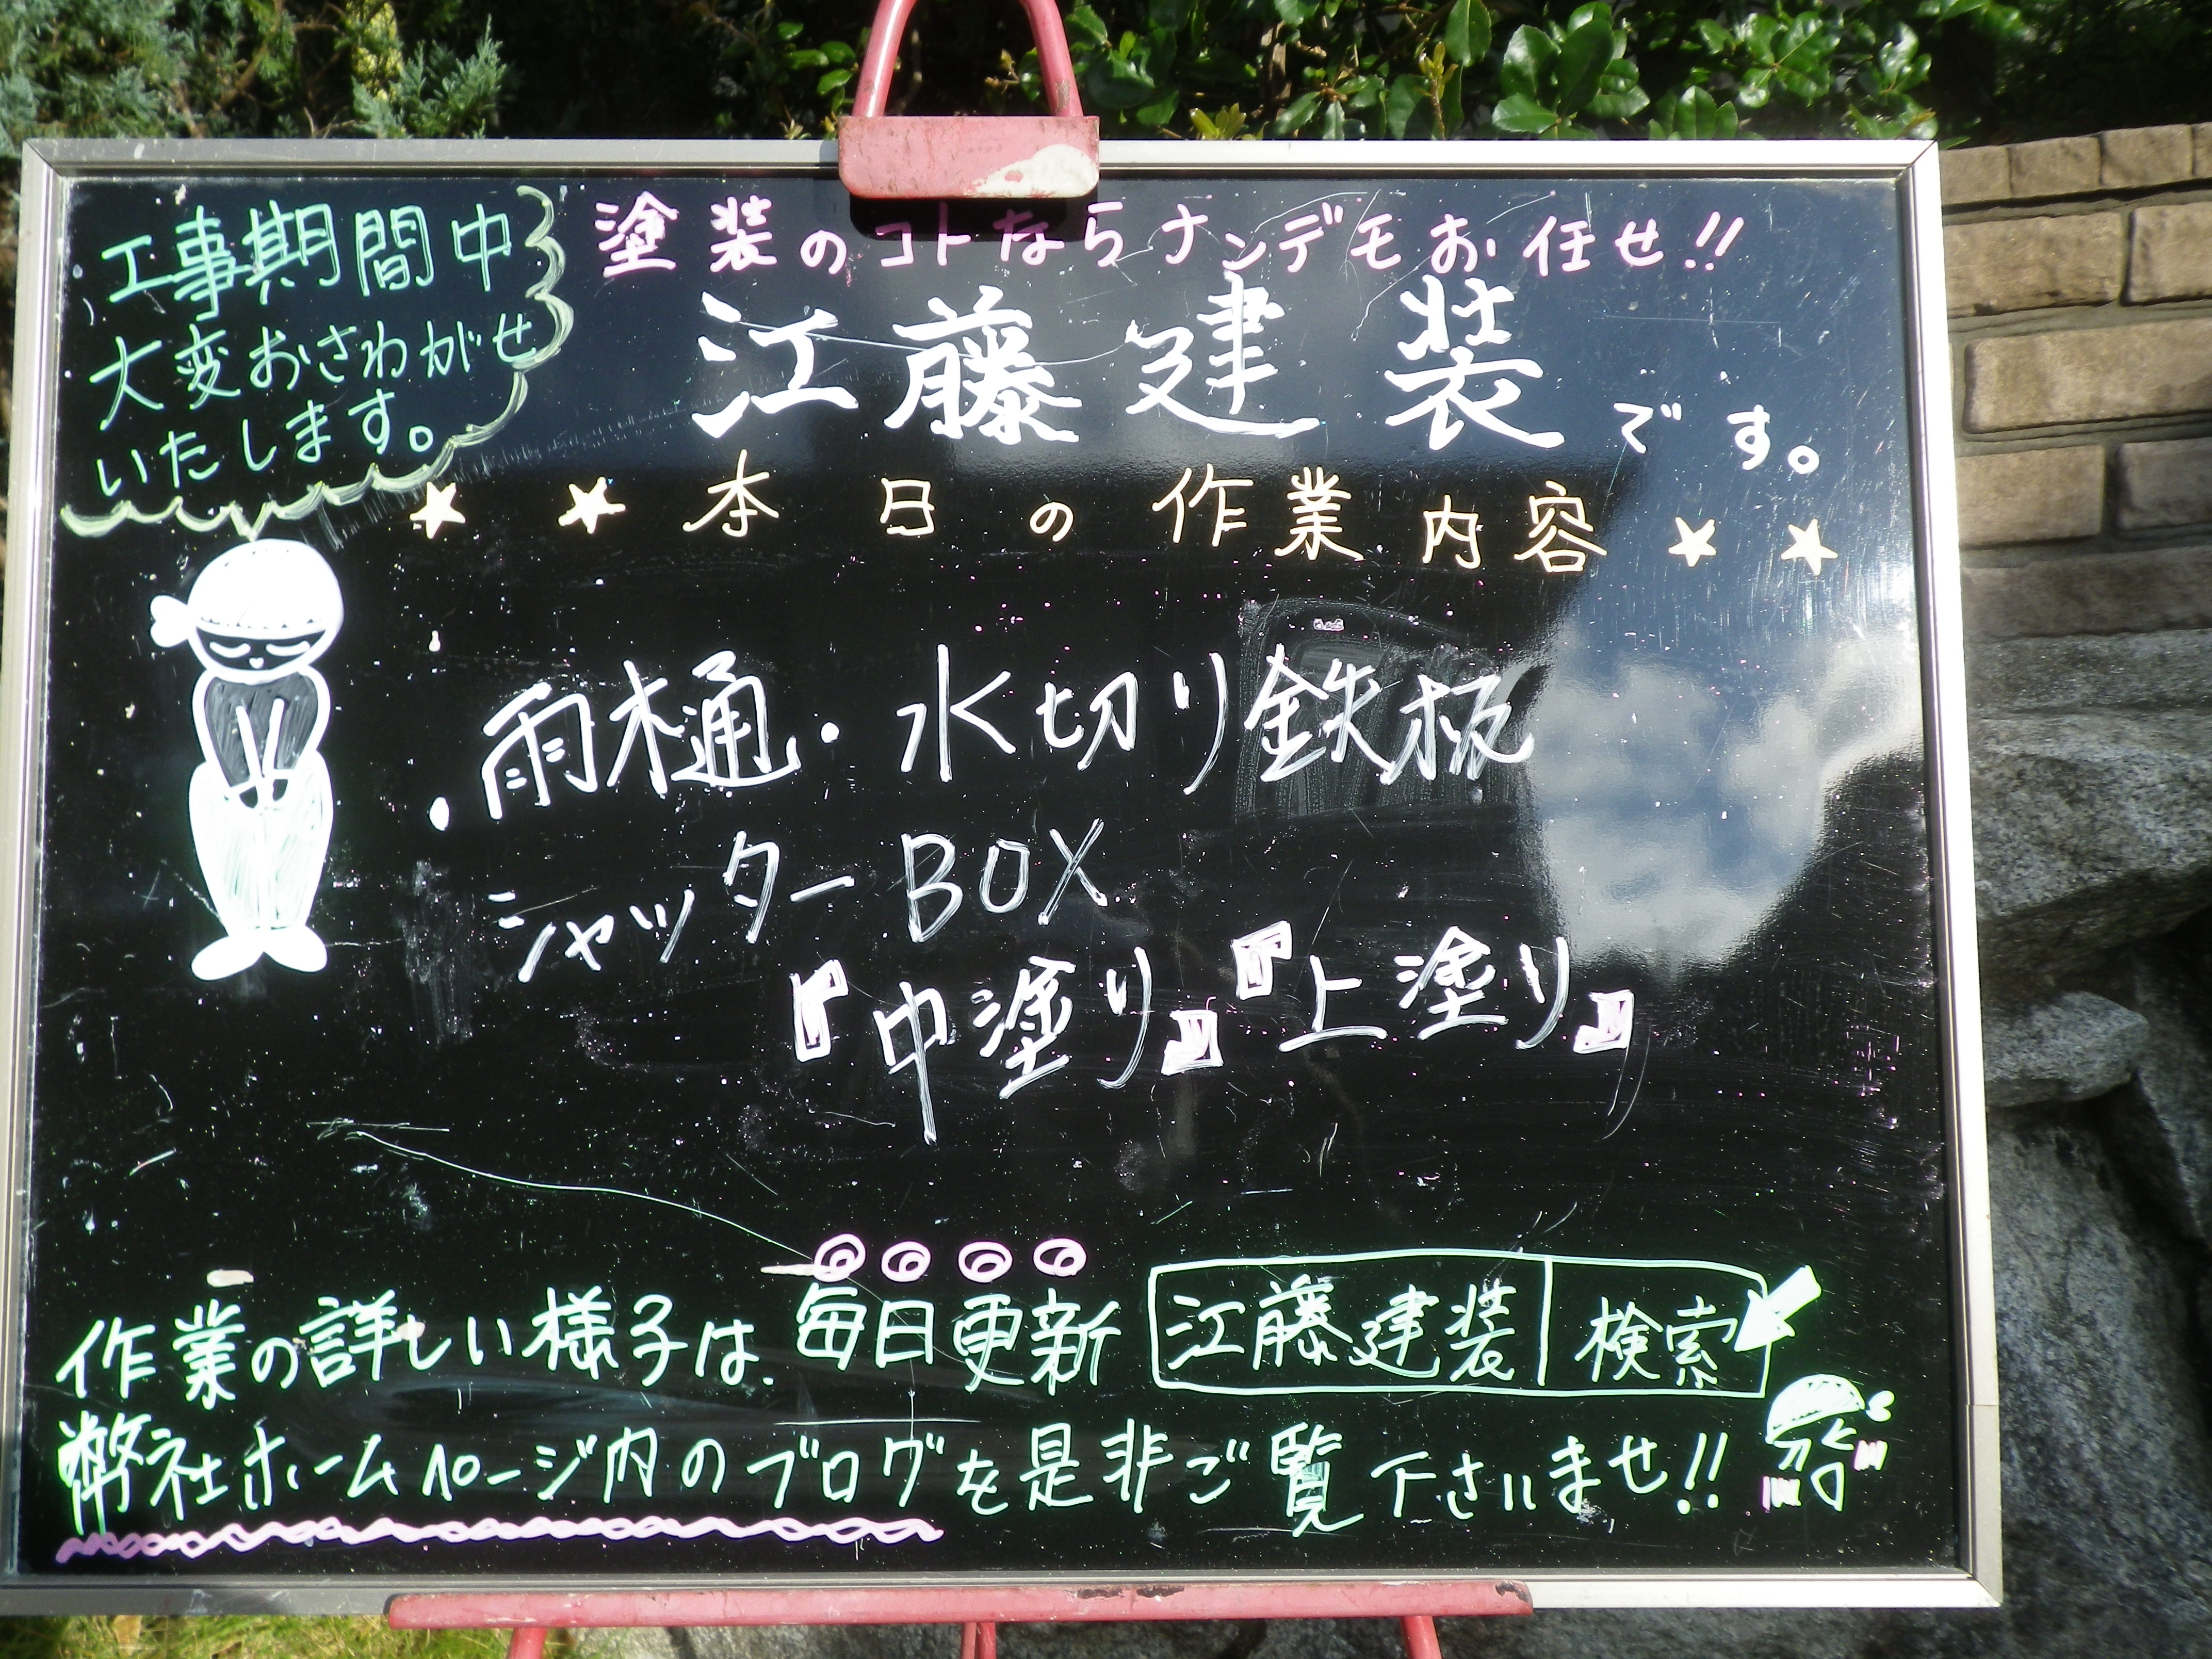 工事期間中
大変おさわがせ
いたします。
塗装のコトならナンデモお任せ!!
江藤建装です。
★ ★ 本日の作業内容 ★ ★
・雨樋・水切り鉄板
シャッターBOX
『中塗り』『上塗り』
作業の詳しい様子は、毎日更新 江藤建装 検索
弊社ホームページ内のブログを是非ご覧下さいませ!!